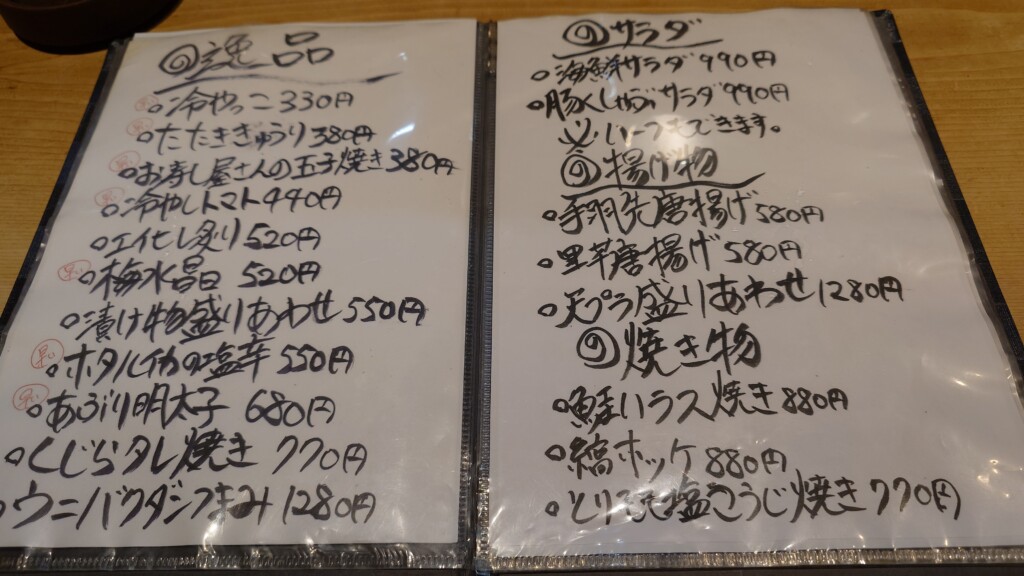 の逸品
冷やっこ 330円
たたききゅうり 380円
お寿し屋さんの玉子焼き 380円
冷やしトマト 440円
エイヒレ炙り 520円
梅水晶 520円
漬け物盛りあわせ 550円
早い ホタルイカの塩辛 550円
早い あぶり明太子 680円
くじらタレ焼き 770円
ウニバクダンつまみ 1280円
のサラダ
海鮮サラダ 990円
豚しゃぶサラダ 990円
いつもできます。
の揚げ物
手羽先唐揚げ 580円
里芋唐揚げ 580円
天プラ盛りあわせ 1280円
の焼き物
鮭ハラス焼き 880円
縞ホッケ 880円
とりもも塩こうじ焼き 770円